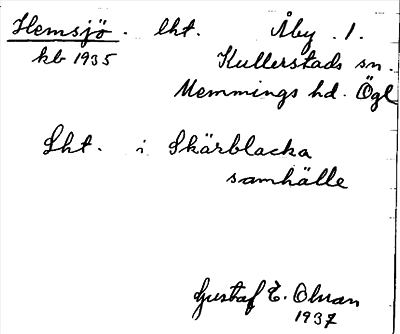 Hemsjö. lht. Åby. 1.
kb 1935 Kullerstads sn.
Memmings hd. Ögl
Lht. i Skärblacka
samhälle
Gustaf E. Olsson
1937